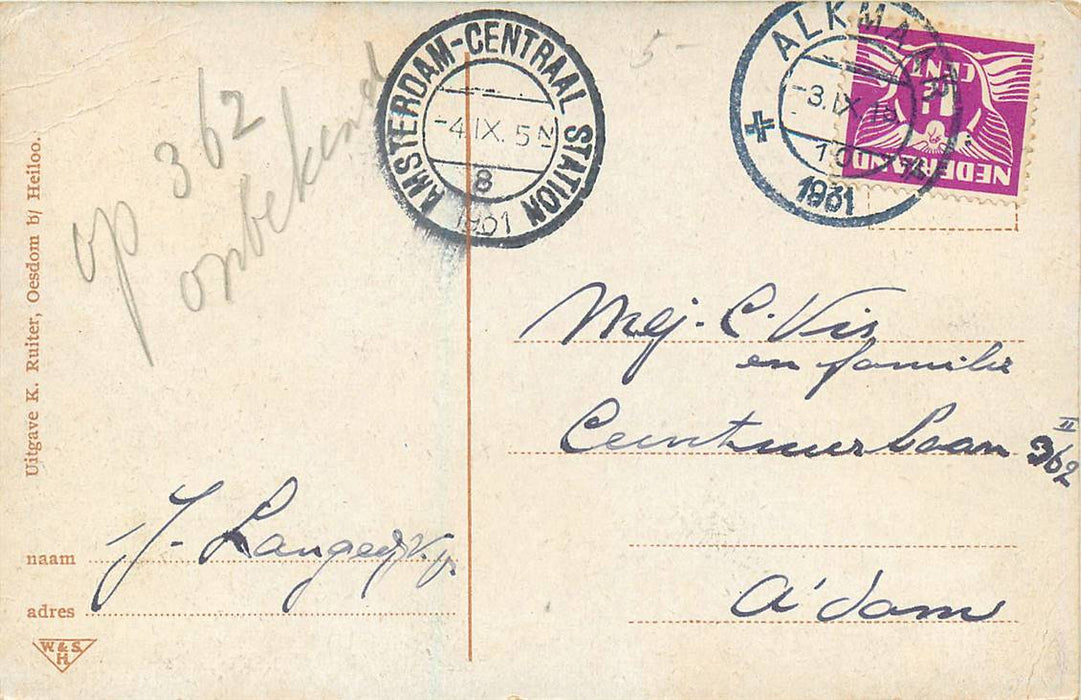 op 362
onbekend
AMSTERDAM-CENTRAAL STATION
-4.IX. 5N
8
1931
5-
ALKMAAR
-3.IX.
1931
CENT
NEDERLAND
Uitgave K. Ruiter, Oesdom b/ Heiloo.
Mej. C. Vis
en familie
Ceintuurbaan 362 II
A'dam
naam J. Langedijk
adres
W & S
H